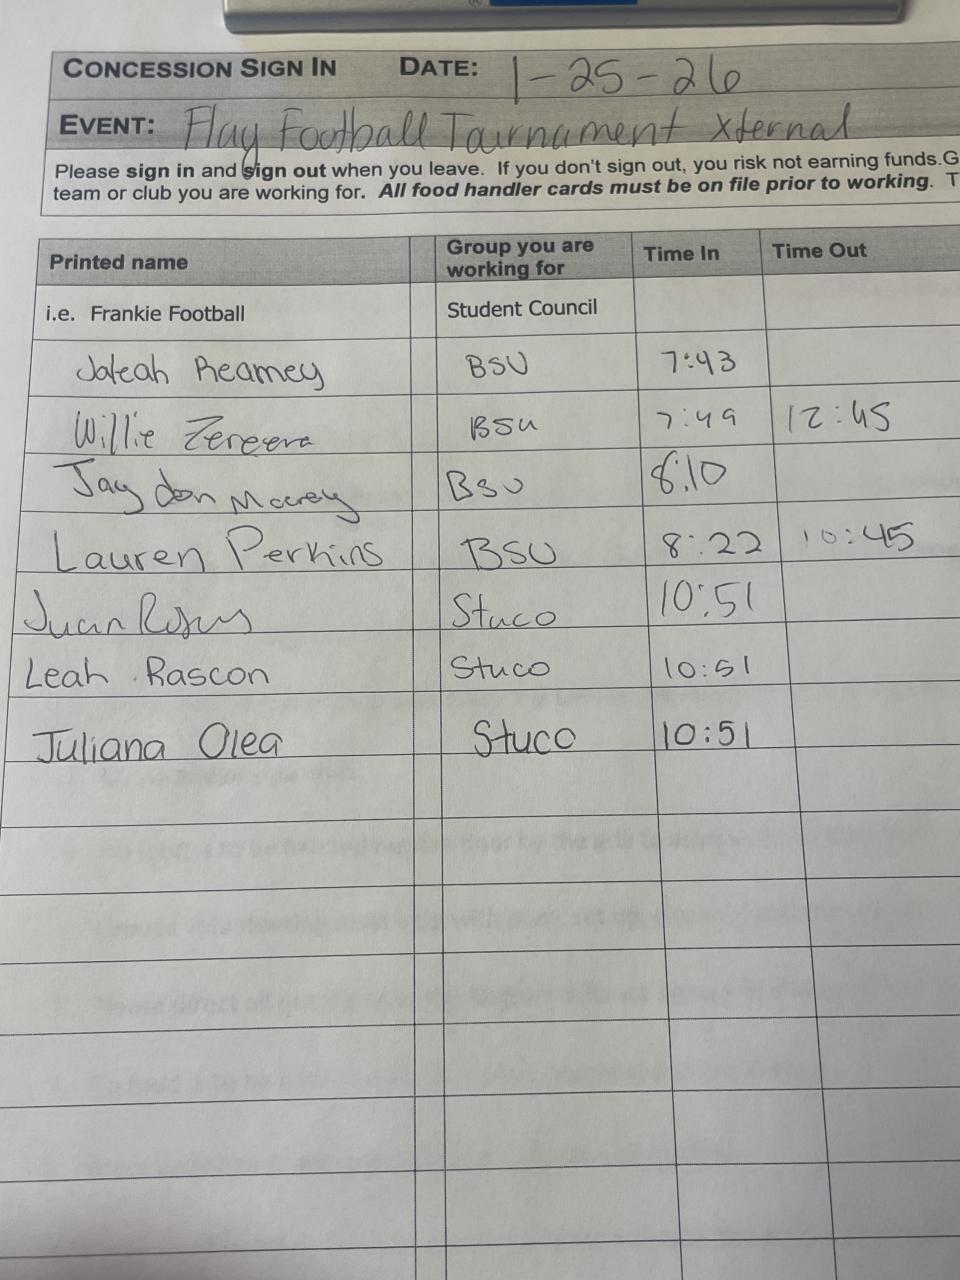 CONCESSION SIGN IN DATE: 1-25-26
EVENT: Flag Football Tournament Xternal
Please sign in and sign out when you leave. If you don't sign out, you risk not earning funds.G
team or club you are working for. All food handler cards must be on file prior to working. T
Printed name Group you are working for Time In Time Out
i.e. Frankie Football Student Council
Jaleah Reamey BSU 7:43
Willie BSU 7:49 12:45
Jaydon BSU 8:10
Lauren Perkins BSU 8:22 10:45
Juan Stuco 10:51
Leah Rascon Stuco 10:51
Juliana Olea Stuco 10:51